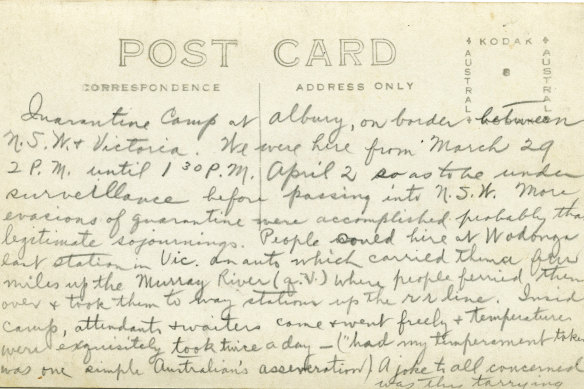 POST CARD
CORRESPONDENCE
ADDRESS ONLY
KODAK
AUSTRAL
AUSTRAL
Quarantine Camp at Albury, on border between
N.S.W. & Victoria. We were here from March 29
2 P.M. until 1 30 P.M. April 2 so as to be under
surveillance before passing into N.S.W. More
evasions of quarantine were accomplished probably tha
legitimate sojournings. People could hire at Wodonga
last station in Vic. an auto which carried them a few
miles up the Murray River (q.V.) where people ferried them
over & took them to way stations up the r/r line. Insid
camp, attendants & waiters came & went freely & temperatures
were exquisitely took twice a day – ("had my temperament taken
was one simple Australian's asseveration) A joke to all concerned
was the tarrying